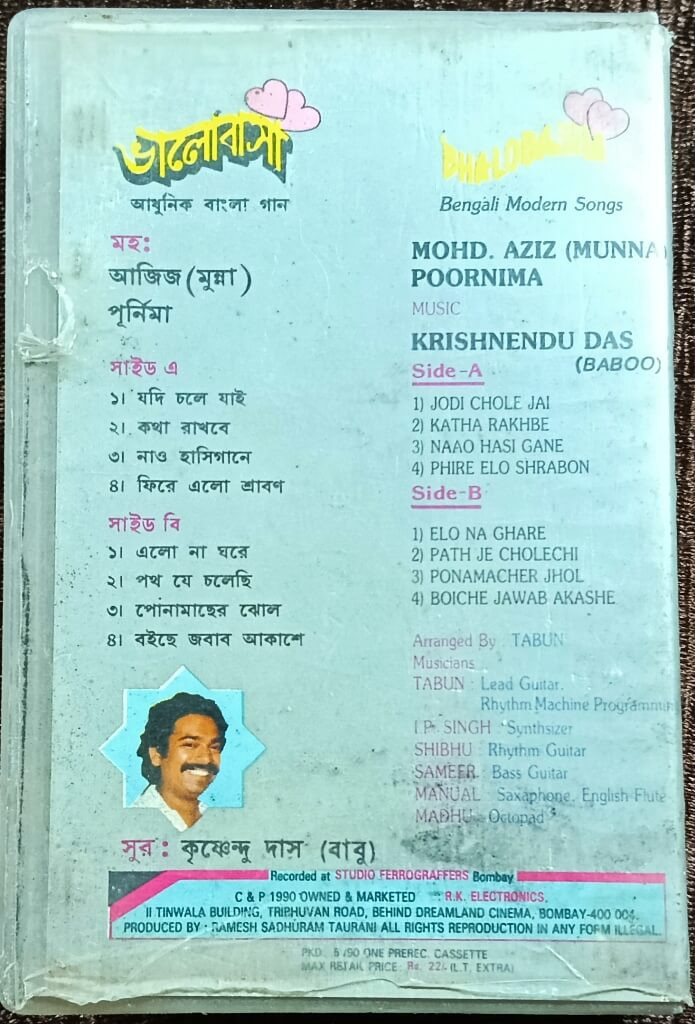 ভালোবাসা
আধুনিক বাংলা গান
মহ:
আজিজ (মুন্না)
পূর্নিমা
সাইড এ
১। যদি চলে যাই
২। কথা রাখবে
৩। নাও হাসিগানে
৪। ফিরে এলো শ্রাবণ
সাইড বি
১। এলো না ঘরে
২। পথ যে চলেছি
৩। পোনামাছের ঝোল
৪। বইছে জবাব আকাশে
সুর : কৃষ্ণেন্দু দাস (বাবু)
Bengali Modern Songs
MOHD. AZIZ (MUNNA)
POORNIMA
MUSIC
KRISHNENDU DAS
(BABOO)
Side-A
1) JODI CHOLE JAI
2) KATHA RAKHBE
3) NAAO HASI GANE
4) PHIRE ELO SHRABON
Side-B
1) ELO NA GHARE
2) PATH JE CHOLECHI
3) PONAMACHER JHOL
4) BOICHE JAWAB AKASHE
Arranged By : TABUN
Musicians
TABUN : Lead Guitar.
Rhythm Machine Programmin
I.P. SINGH : Synthsizer
SHIBHU : Rhythm Guitar
SAMEER : Bass Guitar
MANUAL : Saxaphone, English Flute
MADHU : Octopad
Recorded at STUDIO FERROGRAFFERS Bombay
C & P 1990 OWNED & MARKETED : R.K. ELECTRONICS,
11 TINWALA BUILDING, TRIBHUVAN ROAD, BEHIND DREAMLAND CINEMA, BOMBAY-400 004.
PRODUCED BY : RAMESH SADHURAM TAURANI ALL RIGHTS REPRODUCTION IN ANY FORM ILLEGAL.
PKD. 5/90 ONE PREREC. CASSETTE
MAX RETAIL PRICE: Rs. 22/- (L.T. EXTRA)